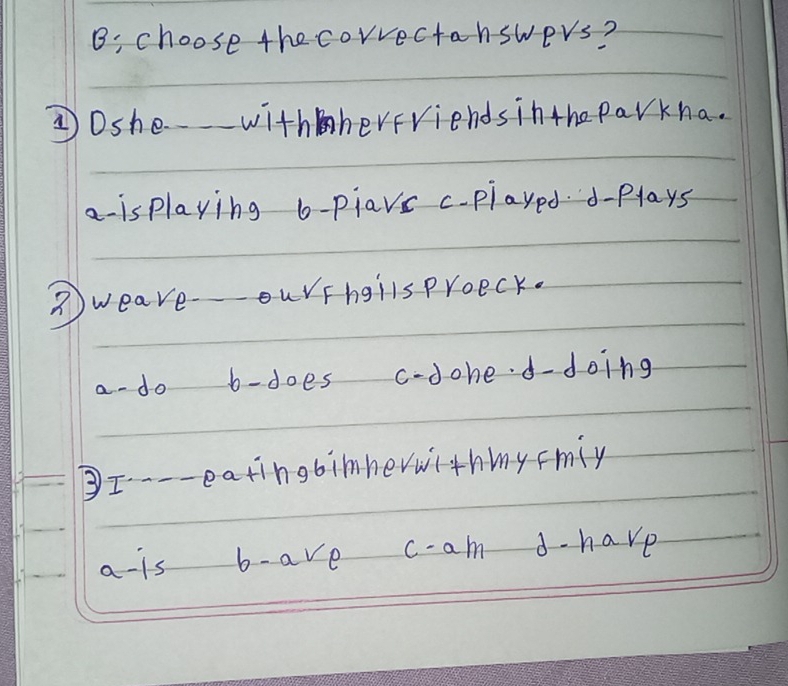 B: choose the correct answers?
1) Dshe----with her friends in the parkna.
a-is playing b-piavs c-piayed. d-plays
2) we are----our Fngiis proeck.
a-do b-does c-done. d-doing
3) I----eating bimher with my Fmiy
a-is b-are c-am d-have